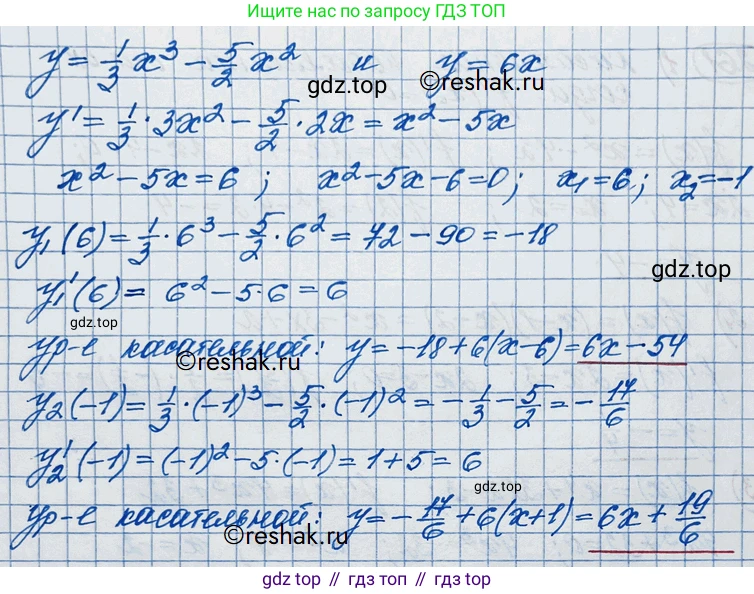 Ищите нас по запросу ГДЗ ТОП
y = 1/3 x³ - 5/2 x² и y = 6x
gdz.top ©reshak.ru
y' = 1/3 · 3x² - 5/2 · 2x = x² - 5x
x² - 5x = 6 ; x² - 5x - 6 = 0; x₁ = 6; x₂ = -1
y₁(6) = 1/3 · 6³ - 5/2 · 6² = 72 - 90 = -18
gdz.top
y₁'(6) = 6² - 5·6 = 6
gdz.top
Ур-е касательной: y = -18 + 6(x-6) = 6x - 54
©reshak.ru
y₂(-1) = 1/3 · (-1)³ - 5/2 · (-1)² = -1/3 - 5/2 = -17/6
y₂'(-1) = (-1)² - 5·(-1) = 1 + 5 = 6
gdz.top
Ур-е касательной: y = -17/6 + 6(x+1) = 6x + 19/6
©reshak.ru
gdz.top // гдз топ // gdz.top